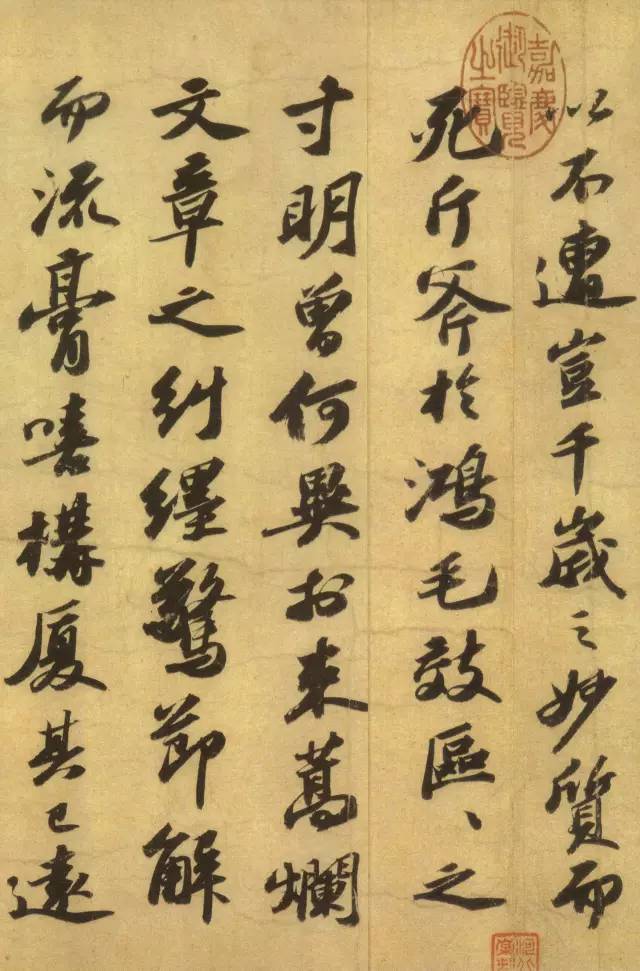 以不遭豈千歲之妙質而
死斤斧於鴻毛效區、之
寸明曾何異於束蒿爛
文章之糾纆驚節解
而流膏嘻構厦其已遠
嘉慶御覽之寶